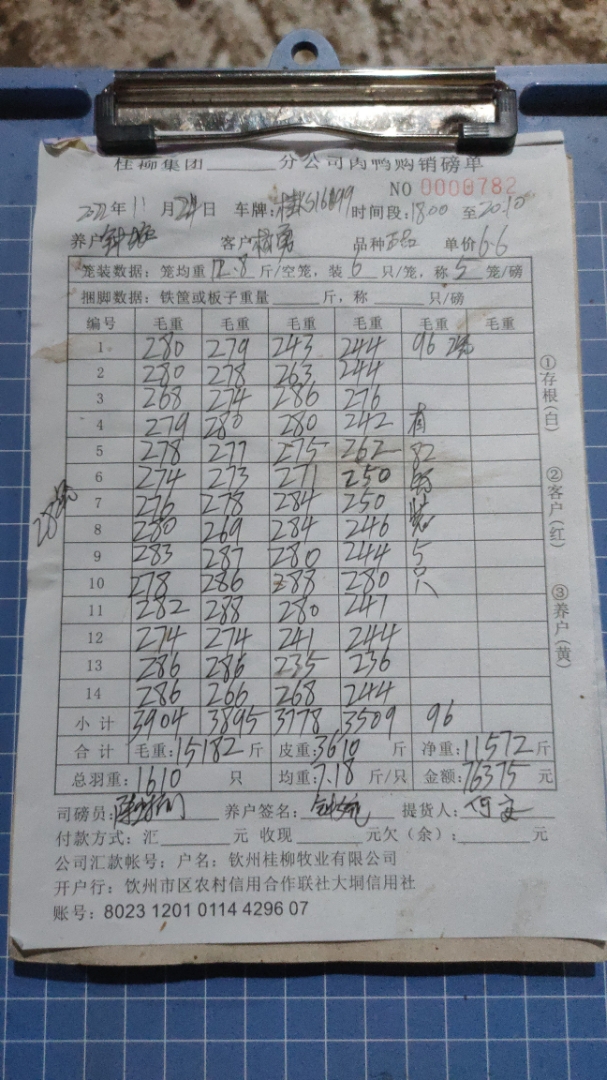 桂柳集团______分公司肉鸭购销磅单
NO 0009782
2022年11月24日 车牌: 时间段:18:00至20:10
养户 客户杨勇 品种正品 单价6.6
笼装数据：笼均重12.8斤/空笼，装6只/笼，称5笼/磅
捆脚数据：铁筐或板子重量______斤，称______只/磅
编号 毛重 毛重 毛重 毛重 毛重 毛重
1 280 279 243 244 96 2笼
2 280 278 263 244
3 268 274 286 276
4 279 280 280 242 有
5 278 277 275 262
6 274 273 271 250
7 276 278 284 250 装
8 280 269 284 246
9 283 287 280 244 5
10 278 286 288 280 只
11 282 288 280 241
12 274 274 241 244
13 286 286 235 236
14 286 266 268 244
小计 3904 3895 3778 3509 96
合计 毛重:15182斤 皮重:3610斤 净重:11572斤
总羽重:1610只 均重:7.18斤/只 金额:76375元
司磅员: 养户签名: 提货人:
付款方式：汇______元 收现______元欠（余）:______元
公司汇款帐号：户名：钦州桂柳牧业有限公司
开户行：钦州市区农村信用合作联社大垌信用社
账号：8023 1201 0114 4296 07
①存根(白)
②客户(红)
③养户(黄)